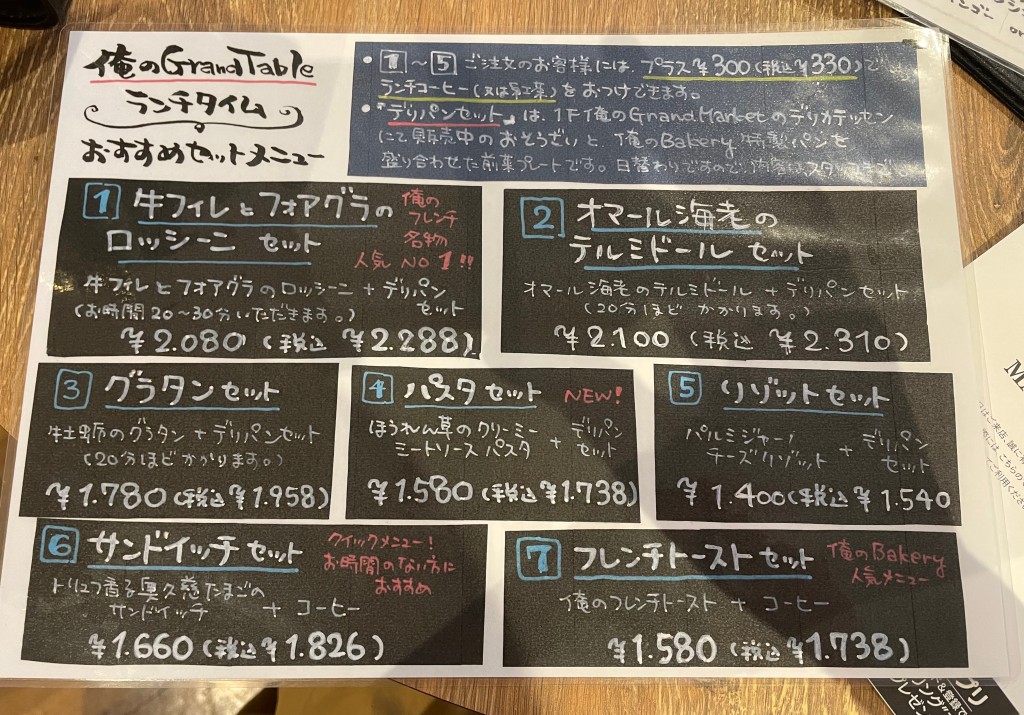 俺のGrandTable
ランチタイム
おすすめセットメニュー
• 1～5 ご注文のお客様には、プラス¥300(税込¥330)で
ランチコーヒー(又は紅茶)をおつけできます。
• 「デリパンセット」は、1F俺のGrandMarketのデリカテッセン
にて販売中のおそうざいと、俺のBakery特製パンを
盛り合わせた前菜プレートです。日替わりですので、内容はスタッフまで
1 牛フィレとフォアグラの
ロッシーニ セット
俺の
フレンチ
名物
人気 NO 1!!
牛フィレとフォアグラのロッシーニ + デリパン
セット
(お時間20～30分いただきます。)
¥2.080 (税込 ¥2.288)
2 オマール海老の
テルミドール セット
オマール海老のテルミドール + デリパンセット
(20分ほど かかります。)
¥2.100 (税込 ¥2.310)
3 グラタンセット
牡蛎のグラタン + デリパンセット
(20分ほど かかります。)
¥1.780(税込¥1.958)
4 パスタセット NEW!
ほうれん草のクリーミー
ミートソースパスタ + デリパン
セット
¥1.580(税込¥1.738)
5 リゾットセット
パルミジャーノ
チーズリゾット + デリパン
セット
¥1.400(税込¥1.540
6 サンドイッチセット
クイックメニュー!
お時間のない方に
おすすめ
トリュフ香る奥久慈たまごの
サンドイッチ + コーヒー
¥1.660(税込¥1.826)
7 フレンチトーストセット
俺のBakery
人気メニュー
俺のフレンチトースト + コーヒー
¥1.580(税込¥1.738)